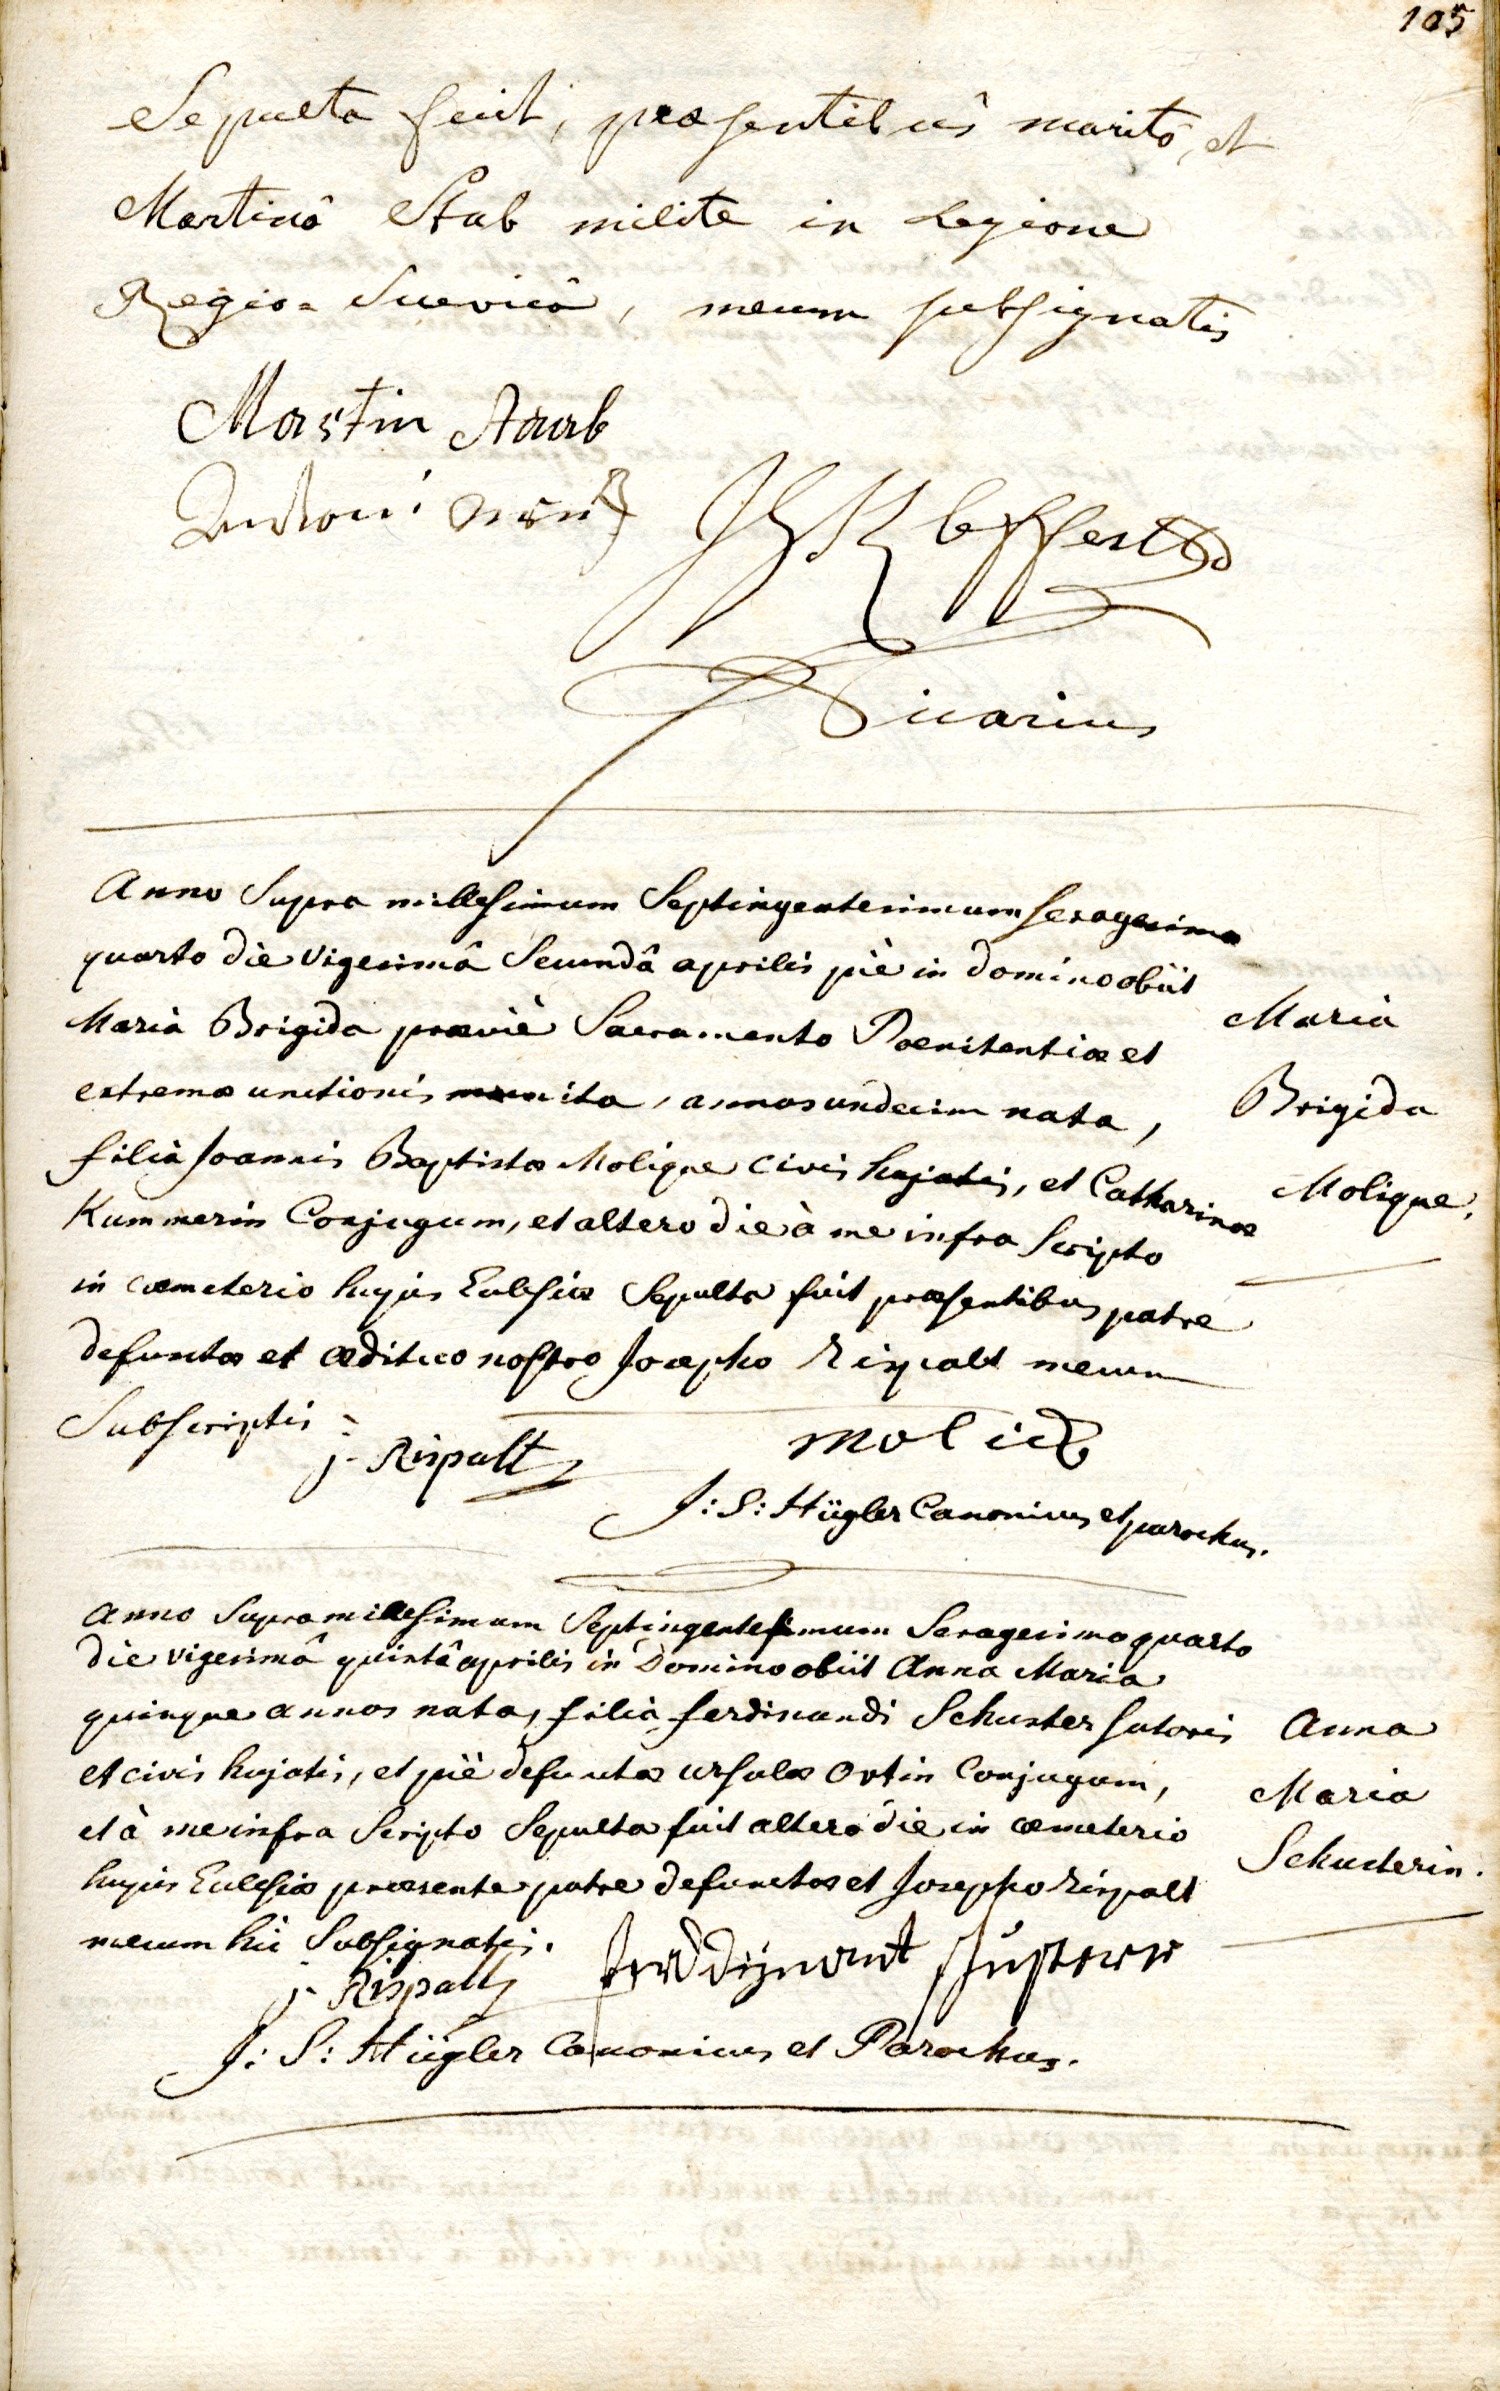 105
Sepulta fuit, præsentibûs maritô, et
Martinô Stab milite in Legione
Regio-Suevicâ, mecum subsignatis
Martin Staub
Antoni
Vicarius
Anno Supra millesimum Septingentesimum sexagesimo
quarto die vigesimâ Secundâ aprilis piè in domino obiit
Maria Brigida præviè Sacramento Poenitentiæ et
extremæ unctionis munita, annos undecim nata,
filia Joannis Baptistæ Molique civis hujatis, et Catharinæ
Kummerin Conjugum, et altero die à me infra Scripto
in cœmeterio hujus Ecclesiæ Sepulta fuit præsentibus patre
defunctæ et ædituo nostro Josepho Rispalt mecum
Subscriptis
Maria
Brigida
Molique.
j. Rispalt
molick
J: S: Hügler Canonicus et parochus.
Anno Supra millesimum Septingentesimum Sexagesimo quarto
die vigesimâ quintâ aprilis in Domino obiit Anna Maria
quinque annos nata, filia ferdinandi Schuster sutoris
et civis hujatis, et piè defunctæ ursulæ Ortin Conjugum,
et à me infra Scripto Sepulta fuit altero die in cœmeterio
hujus Ecclesiæ præsente patre defunctæ et Josepho Rispalt
mecum hìc Subsignatis.
Anna
Maria
Schusterin.
j. Rispalt
J: S: Hügler Canonicus et Parochus.